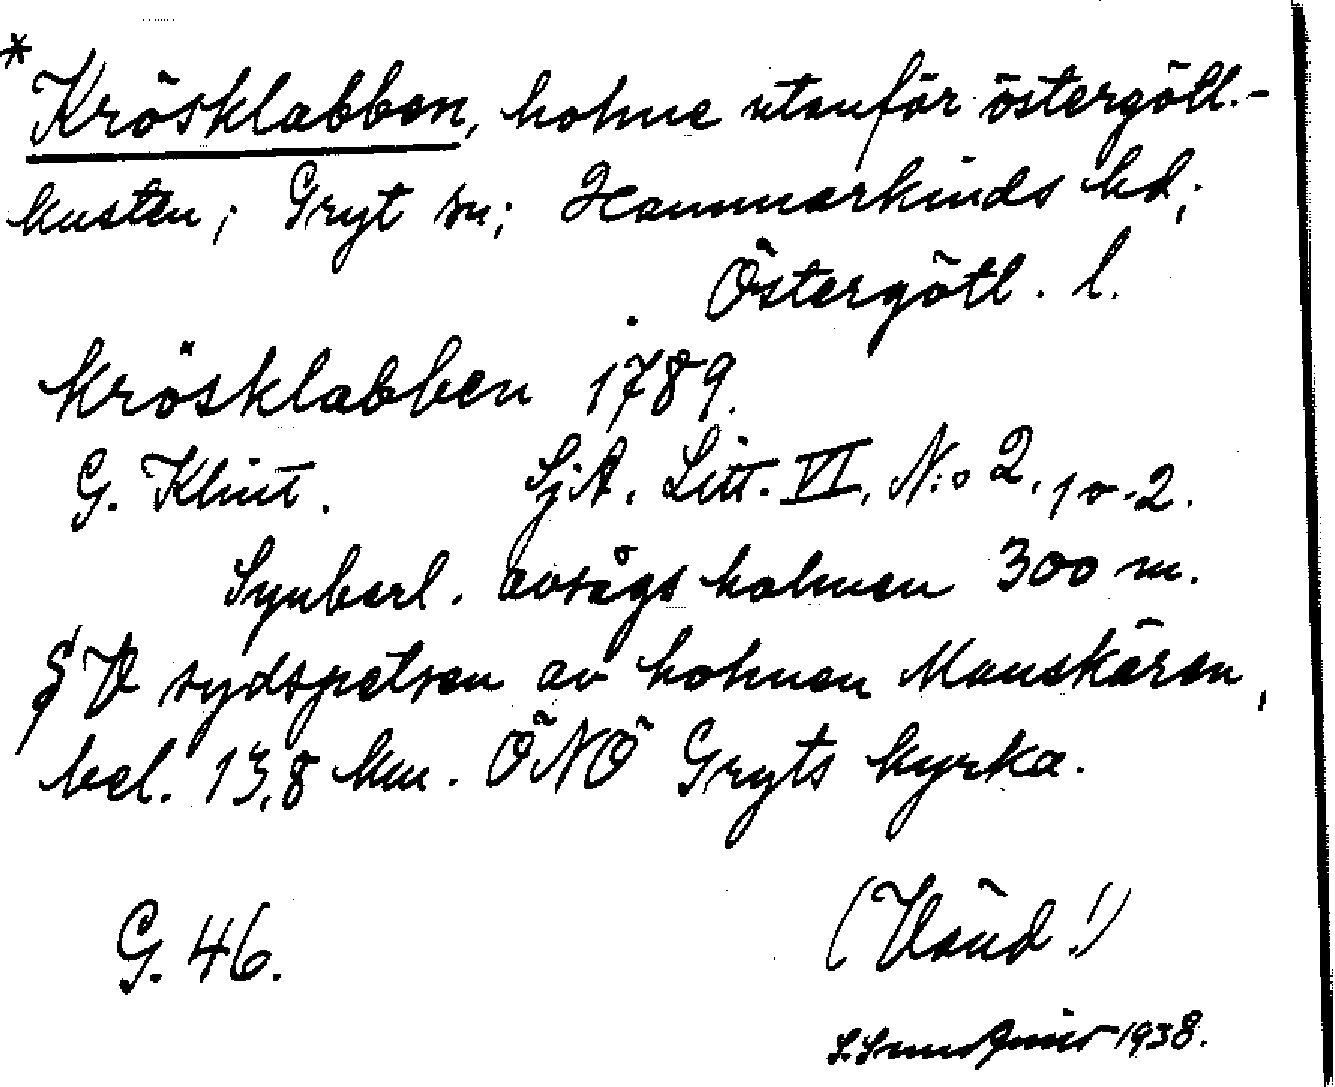 * Krösklabben, holme utanför östergötl.-
kusten; Gryt sn; Hammarkinds hd;
Östergötl. l.
Krösklabben 1789.
G. Klint. SjA. Litt. VI, N:o 2, 1 o. 2.
Synberl. avsågs holmen 300 m.
SV sydspetsen av holmen Manskären,
bel. 13,8 km. ÖNÖ Gryts kyrka.
G. 46. (Vänd!)
1938.